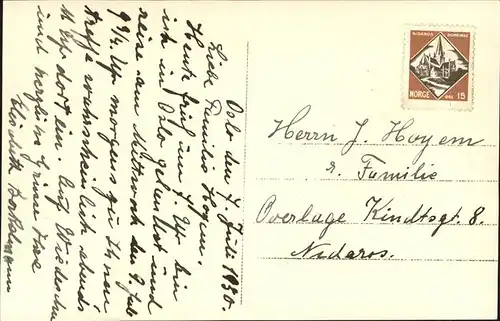 Oslo den 7. Juli 1930.
Liebe Familie Hoyem.
Heute früh um 7. Uhr bin
ich in Oslo gelandet und
reise am Mittwoch den 9. Juli
9¾ Uhr morgens zu Ihnen
treffe wahrscheinlich abends
11 Uhr dort ein. Auf Wiedersehn
und herzliche Grüsse Ihre
NIDAROS DOMKIRKE
NORGE 15
Herrn J. Hoyem
u. Familie
Overlage Kindtsgt. 8.
Nidaros.